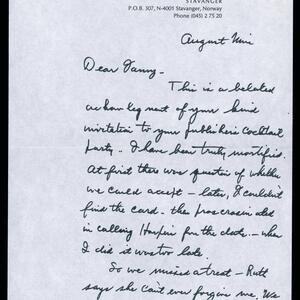 STAVANGER
P.O.B. 307, N-4001 Stavanger, Norway
Phone (045) 2 75 20
August Nine
Dear Danny -
This is a belated
acknowlegment of your kind
invitation to your publisher's cocktail
party. I have been truly mortified.
At first there was question of whether
we could accept - later, I couldn't
find the card - then procrastinated
in calling Harper for the date - when
I did it was too late.
So we missed a treat - Ruth
says she can't ever forgive me. We